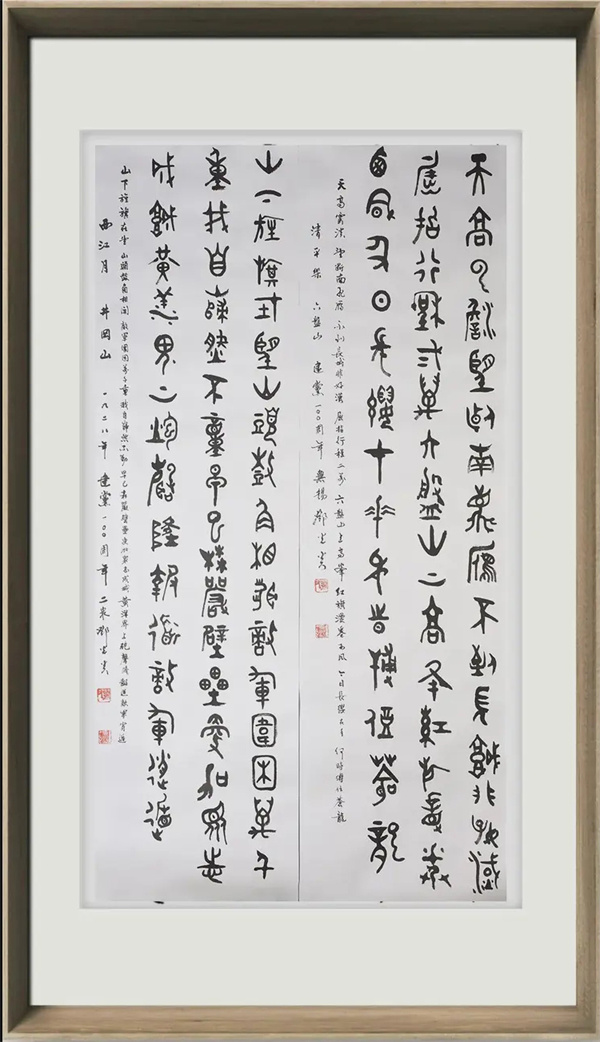 天高雲淡望斷南飛雁不到長城非好漢
屈指行程二萬六盤山上高峰紅旗漫卷
西風今日長纓在手何時縛住蒼龍
天高雲淡 望斷南飛雁 不到長城非好漢 屈指行程二萬 六盤山上高峰 紅旗漫卷西風 今日長纓在手 何時縛住蒼龍
清平樂 六盤山 建黨一〇〇周年
山下旌旗在望山頭鼓角相聞敵軍圍困萬千
重我自巋然不動早已森嚴壁壘更加眾志
成城黃洋界上炮聲隆報道敵軍宵遁
山下旌旗在望 山頭鼓角相聞 敵軍圍困萬千重 我自巋然不動 早已森嚴壁壘 更加眾志成城 黃洋界上炮聲隆 報道敵軍宵遁
西江月 井岡山 一九二八年 建黨一〇〇周年